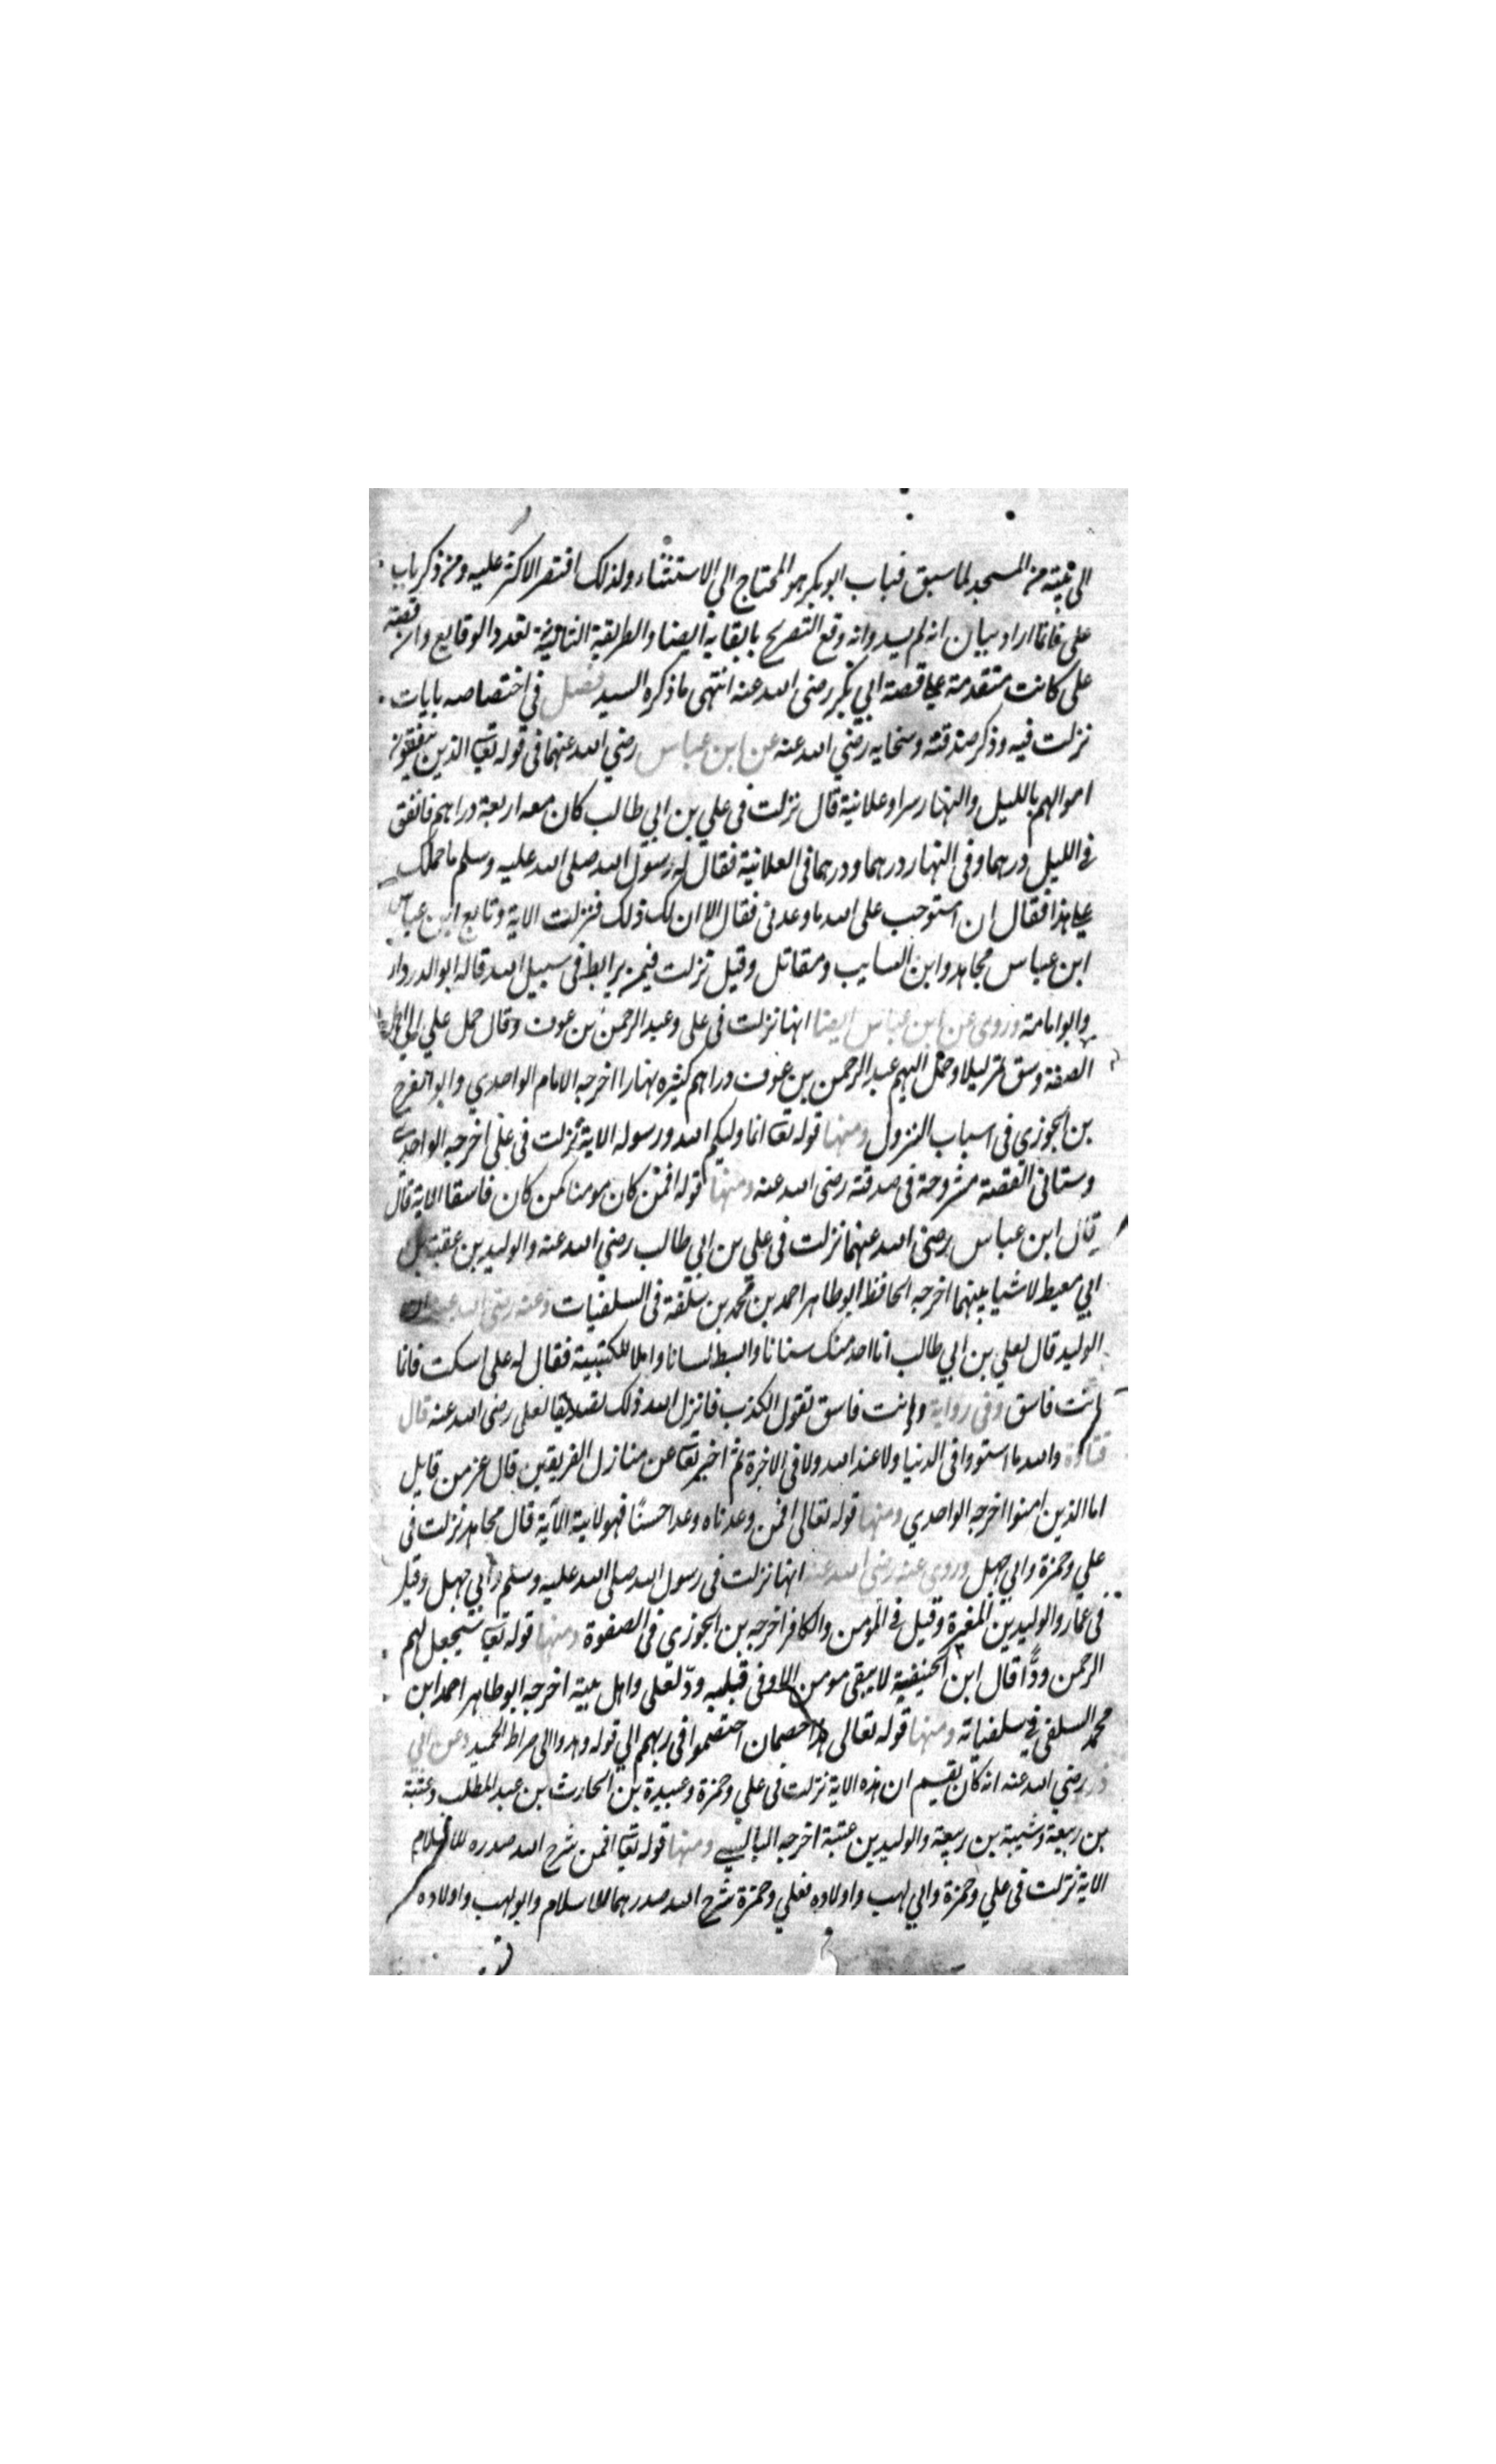 الى بيته من المسجد لما سبق فباب ابو بكر هو المحتاج الى الاستثناء ولذلك اقتصر الاكثر عليه ومن ذكر باب
على فانما اراد بيان انه لم يسد وانه وقع التصريح بابقايه ايضا والطريقة الثانية تعدد الوقايع وان قصة
على كانت متقدمة على قصة ابي بكر رضى الله عنه انتهى ما ذكره السيد فصل في اختصاصه بايات
نزلت فيه وذكر صدقته وسخايه رضي الله عنه عن ابن عباس رضي الله عنهما فى قوله تعا الذين ينفقون
اموالهم بالليل والنهار سرا وعلانية قال نزلت فى علي بن ابي طالب كان معه اربعة دراهم فانفق
في الليل درهما وفى النهار درهما ودرهما فى العلانية فقال له رسول الله صلى الله عليه وسلم ما حملك
على هذا فقال ان استوجب على الله ما وعدنى فقال الا ان لك ذلك فنزلت الاية وتابع ابن عباس
ابن عباس مجاهد وابن السايب ومقاتل وقيل نزلت فيمن يرابط فى سبيل الله قاله ابو الدرداء
وابو امامة وروى عن ابن عباس ايضا انها نزلت فى على وعبد الرحمن بن عوف وقال حمل علي الى اهل
الصفة وسق تمر ليلا وحمل اليهم عبد الرحمن بن عوف دراهم كثيره نهارا اخرجه الامام الواحدي وابو الفرج
بن الجوزي فى اسباب النزول ومنها قوله تعا انما وليكم الله ورسوله الاية نزلت فى علي اخرجه الواحدي
وستاتى القصة مشروحة فى صدقته رضى الله عنه ومنها قوله افمن كان مومنا كمن كان فاسقا الاية قال
قال ابن عباس رضى الله عنهما نزلت فى علي بن ابي طالب رضي الله عنه والوليد بن عقبة بن
ابي معيط لاشيا بينهما اخرجه الحافظ ابو طاهر احمد بن محمد بن سلفة فى السلفيات وعنه رضى الله عنه ان
الوليد قال لعلي بن ابي طالب انا احد منك سنانا وابسط لسانا واملا للكتيبة فقال له على اسكت فانما
انت فاسق وفى رواية وانت فاسق تقول الكذب فانزل الله ذلك تصديقا لعلى رضى الله عنه قال
قتادة والله ما استووا فى الدنيا ولا عند الله ولا فى الاخرة ثم اخبر تعا عن منازل الفريقين قال عز من قايل
اما الذين امنوا اخرجه الواحدي ومنها قوله تعالى افمن وعدناه وعدا حسنا فهو لاقيه الآية قال مجاهد نزلت فى
علي وحمزة وابي جهل وروى عنه رضى الله عنه انها نزلت فى رسول الله صلى الله عليه وسلم وابي جهل وقيل
فى عمار والوليد بن المغيرة وقيل في المؤمن والكافر اخرجه بن الجوزي فى الصفوة ومنها قوله تعا سيجعل لهم
الرحمن ودا قال ابن الحنيفية لا يبقى مومن الا وفى قلبه ود لعلى واهل بيته اخرجه ابو طاهر احمد ابن
محمد السلفى في سلفياته ومنها قوله تعالى هذا خصمان اختصموا فى ربهم الى قوله وهدوا الى صراط الحميد وعن ابي
ذر رضي الله عنه انه كان يقسم ان هذه الاية نزلت فى علي وحمزة وعبيدة بن الحارث بن عبد المطلب وعتبة
بن ربيعة وشيبة بن ربيعة والوليد بن عتبة اخرجه ومنها قوله تعا افمن شرح الله صدره للاسلام
الاية نزلت فى علي وحمزة وابي لهب واولاده فعلي وحمزة شرح الله صدرهما للاسلام وابو لهب واولاده